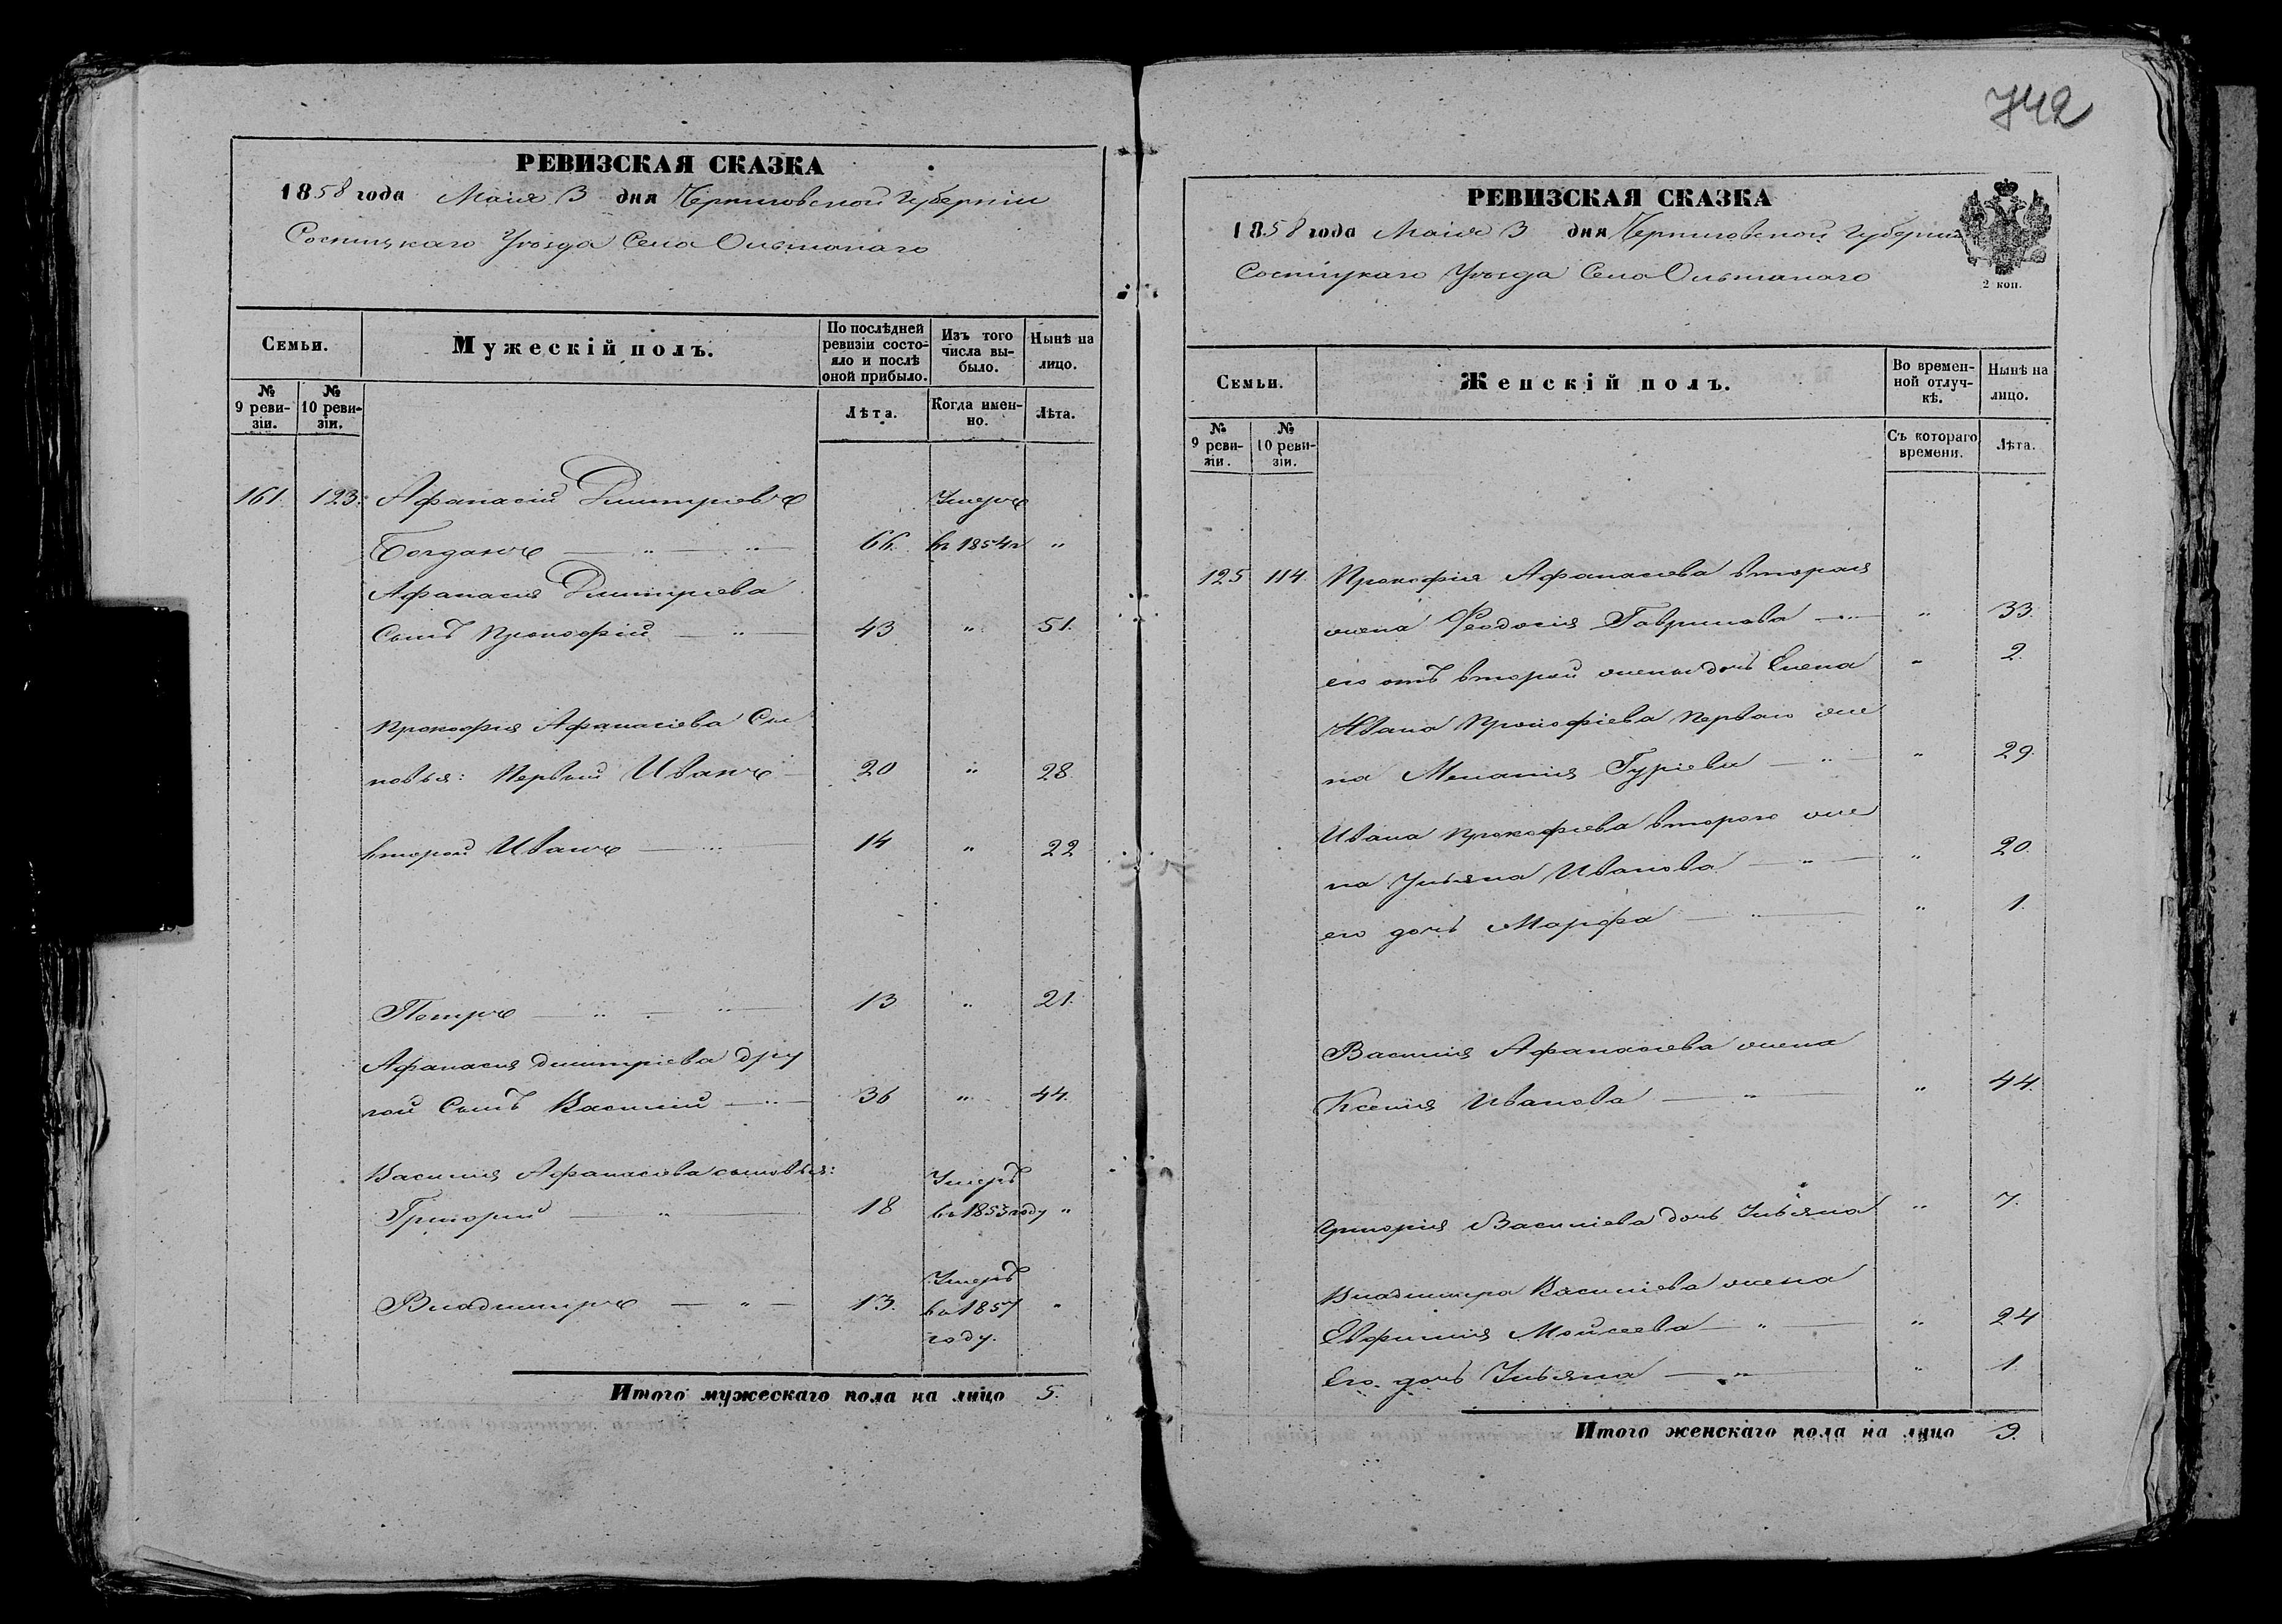 742
РЕВИЗСКАЯ СКАЗКА
1858 года Маія 3 дня Черниговской Губерніи
Сосницкаго Уѣзда Села Ольшанаго
Семьи.
Мужескій полъ.
По послѣдней ревизіи состояло и послѣ оной прибыло.
Изъ того числа выбыло.
Нынѣ на лицо.
№ 9 ревизіи.
№ 10 ревизіи.
Лѣта.
Когда именно.
Лѣта.
161. 123. Афанасій Дмитріевъ Умеръ
Богданъ — „ — „ 66. въ 1854 г „
Афанасія Дмитріева
Сынъ Прокофій — „ — 43 „ 51.
Прокофія Афанасіева Сы
новья: Первый Иванъ — 20 „ 28.
второй Иванъ — „ — 14 „ 22
Петръ — „ — „ — 13 „ 21.
Афанасія Дмитріева дру
гой Сынъ Василій — „ — 36 „ 44.
Василія Афанасіева сыновья: Умеръ
Григорій — „ — 18 въ 1853 году „
Умеръ
Владимиръ — „ — 13. въ 1857 „
году.
Итого мужескаго пола на лицо 5.
РЕВИЗСКАЯ СКАЗКА
1858 года Маія 3 дня Черниговской Губерніи
Сосницкаго Уѣзда Села Ольшанаго
2 коп.
Семьи.
Женскій полъ.
Во временной отлучкѣ.
Нынѣ на лицо.
№ 9 ревизіи.
№ 10 ревизіи.
Съ котораго времени.
Лѣта.
125 114. Прокофія Афанасіева вторая
жена Феодосія Гаврилова — „ — „ 33.
его отъ второй жены дочь Елена „ 2.
Ивана Прокофіева Перваго же
на Меланія Гуріева — „ — „ 29.
Ивана Прокофіева второго же
на Ульяна Иванова — „ — „ 20.
его дочь Марфа — „ — „ 1.
Василія Афанасіева жена
Ксенія Иванова — „ — „ 44.
Григорія Василіева дочь Ульяна „ 7.
Владимира Василіева жена
Евфимія Мойсеева — „ — „ 24
Его дочь Ульяна — „ — „ 1.
Итого женскаго пола на лицо 9.